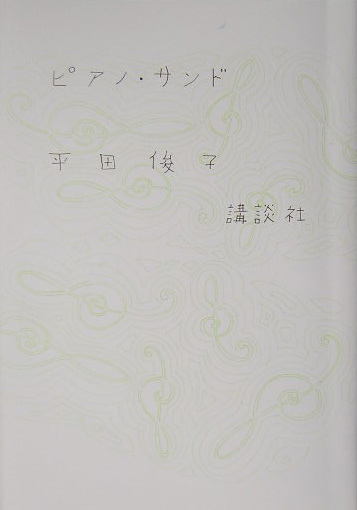 ピアノ・サンド
平田俊子
講談社